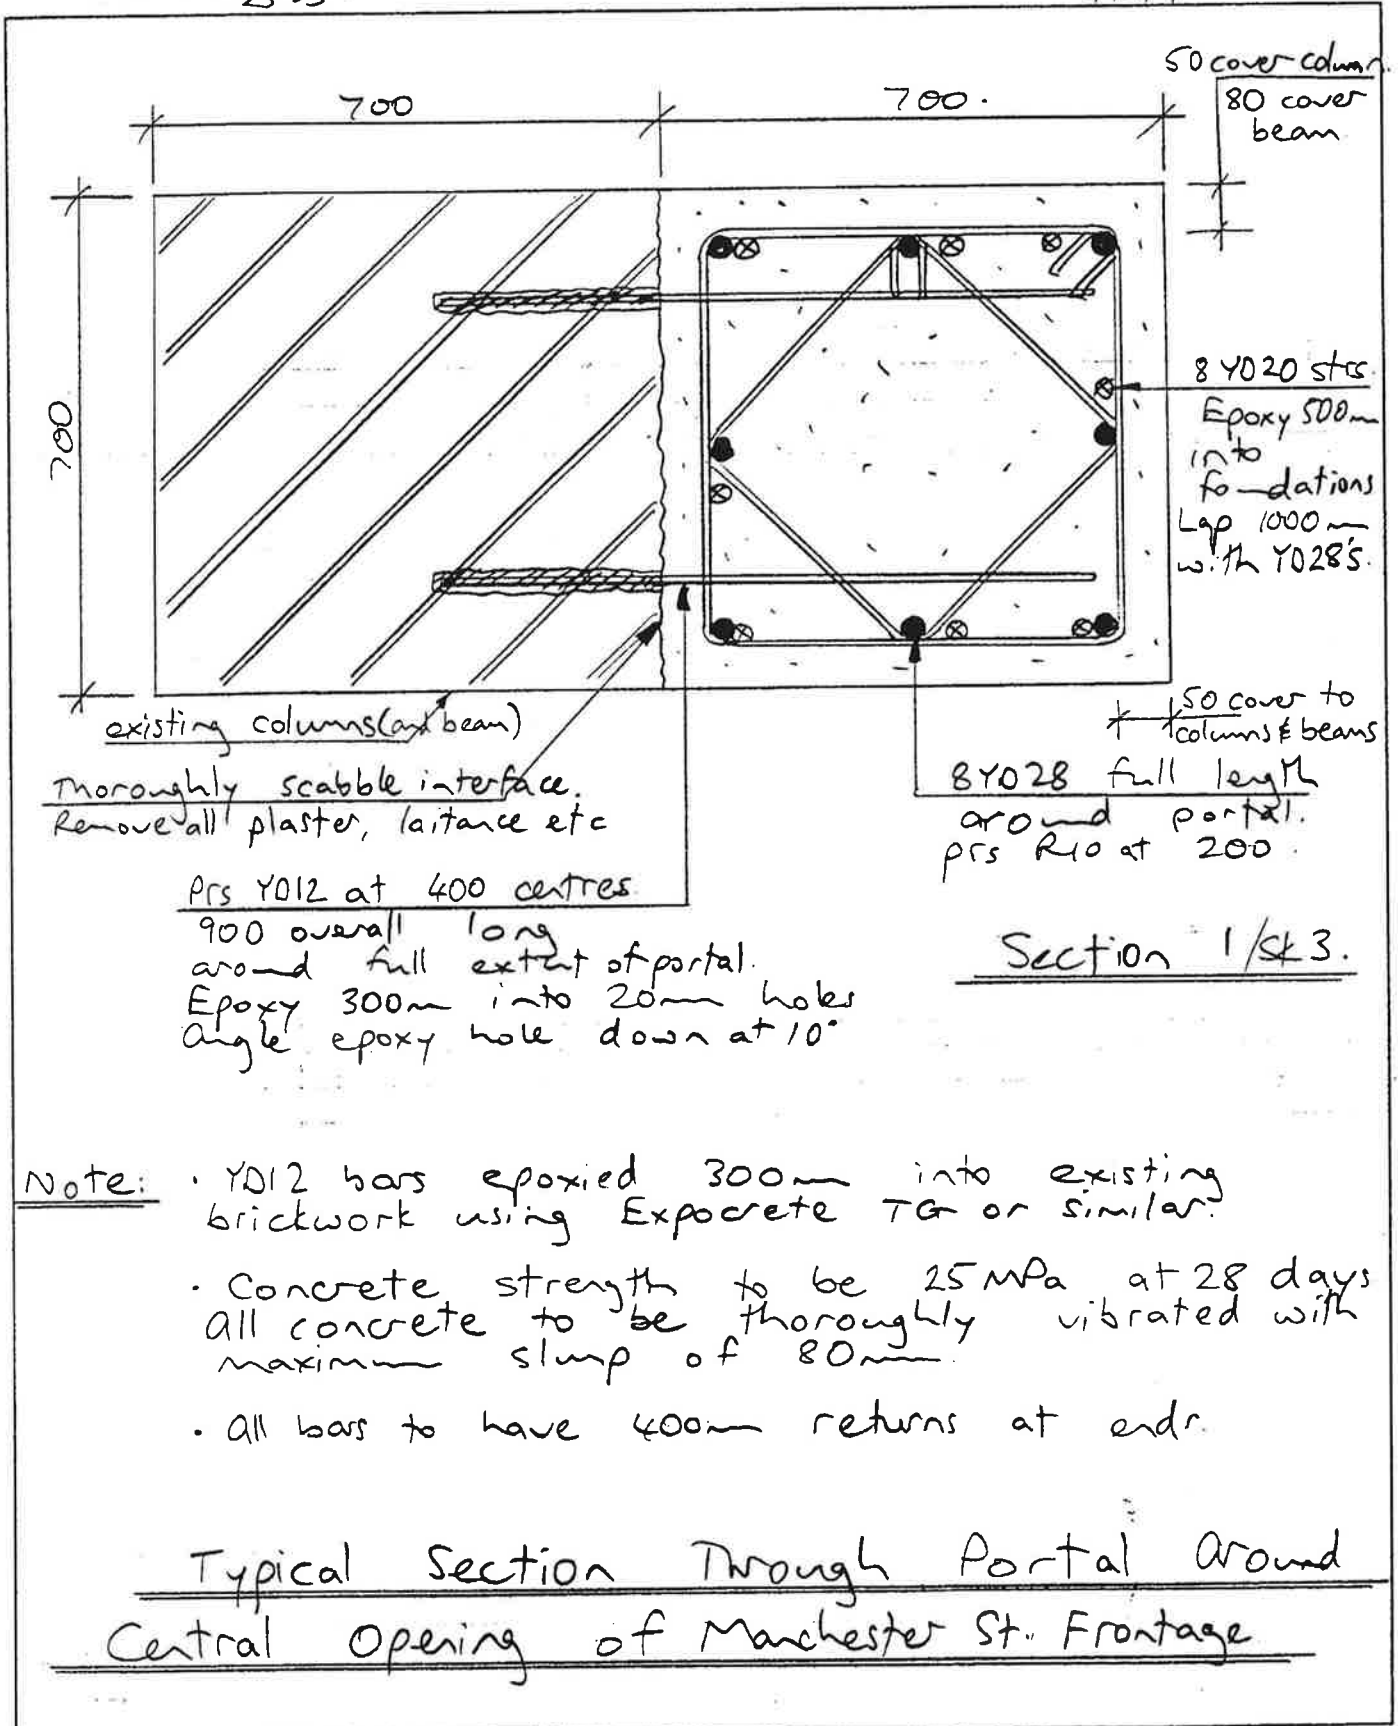 50 cover column.
80 cover
beam
700
700.
700
8 YD20 strs
Epoxy 500mm
into
foundations
Lap 1000mm
with YD28's.
existing columns (and beam)
50 cover to
columns & beams
Thoroughly scabble interface.
Remove all plaster, laitance etc
8 YD28 full length
around portal.
prs R10 at 200.
Prs YD12 at 400 centres
900 overall long
around full extent of portal.
Epoxy 300mm into 20mm holes
Angle epoxy hole down at 10°
Section 1/SK3.
Note: · YD12 bars epoxied 300mm into existing
brickwork using Expocrete TG or similar.
· Concrete strength to be 25 MPa at 28 days
All concrete to be thoroughly vibrated with
maximum slump of 80mm.
· All bars to have 400mm returns at ends.
Typical Section Through Portal Around
Central Opening of Manchester St. Frontage